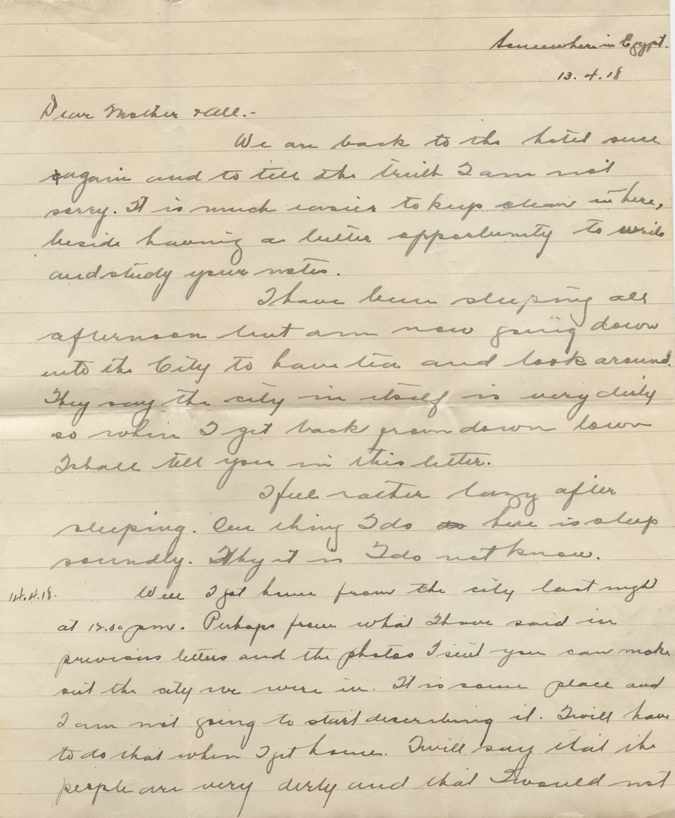 Somewhere in Egypt.
13.4.18
Dear Mother & All.-
We are back to the hotel once
again and to tell the truth I am not
sorry. It is much easier to keep clean in here,
beside having a better opportunity to write
and study your notes.
I have been sleeping all
afternoon but am now going down
into the City to have tea and look around.
They say the city in itself is very dirty
so when I get back from down town
I shall tell you in this letter.
I feel rather lazy after
sleeping. One thing I do do here is sleep
soundly. Why it is I do not know.
14.4.18. Well I got home from the city last night
at 12.00 pm. Perhaps from what I have said in
previous letters and the photos I sent you can make
out the city we were in. It is some place and
I am not going to start describing it. I will have
to do that when I get home. I will say that the
people are very dirty and that I would not